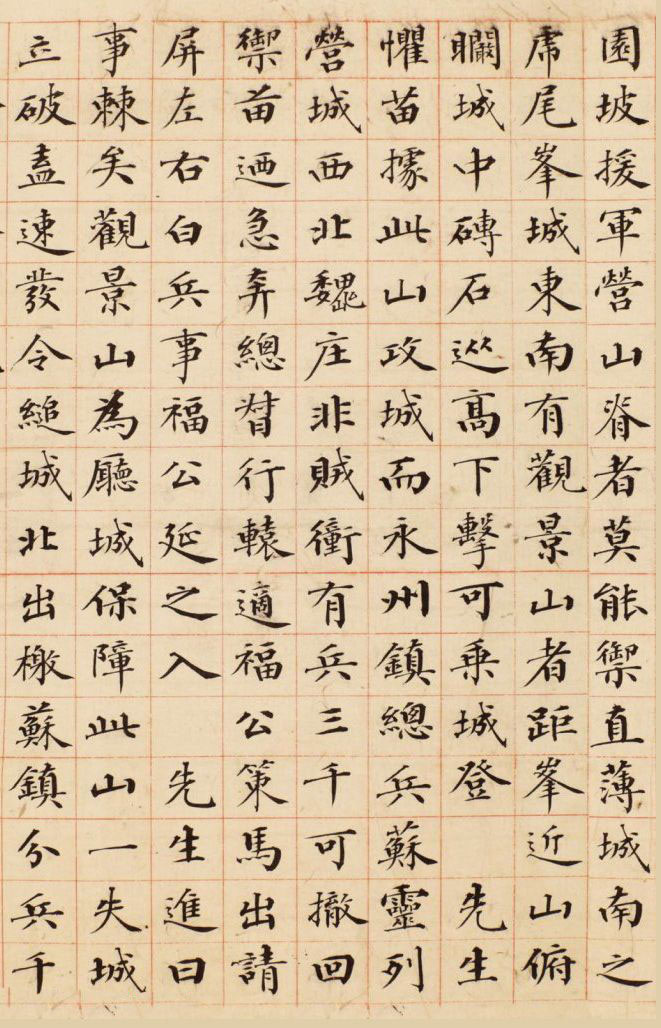 園坡援軍營山脊者莫能禦直薄城南之
席尾峯城東南有觀景山者距峯近山俯
瞯城中磚石巡高下擊可乗城登　先生
懼苗據此山攻城而永州鎮總兵蘇靈列
營城西北魏庄非賊衝有兵三千可撤回
禦苗迺急奔總督行轅適福公策馬出請
屏左右白兵事福公延之入　先生進曰
事棘矣觀景山為廳城保障此山一失城
立破盍速發令縋城北出檄蘇鎮分兵千